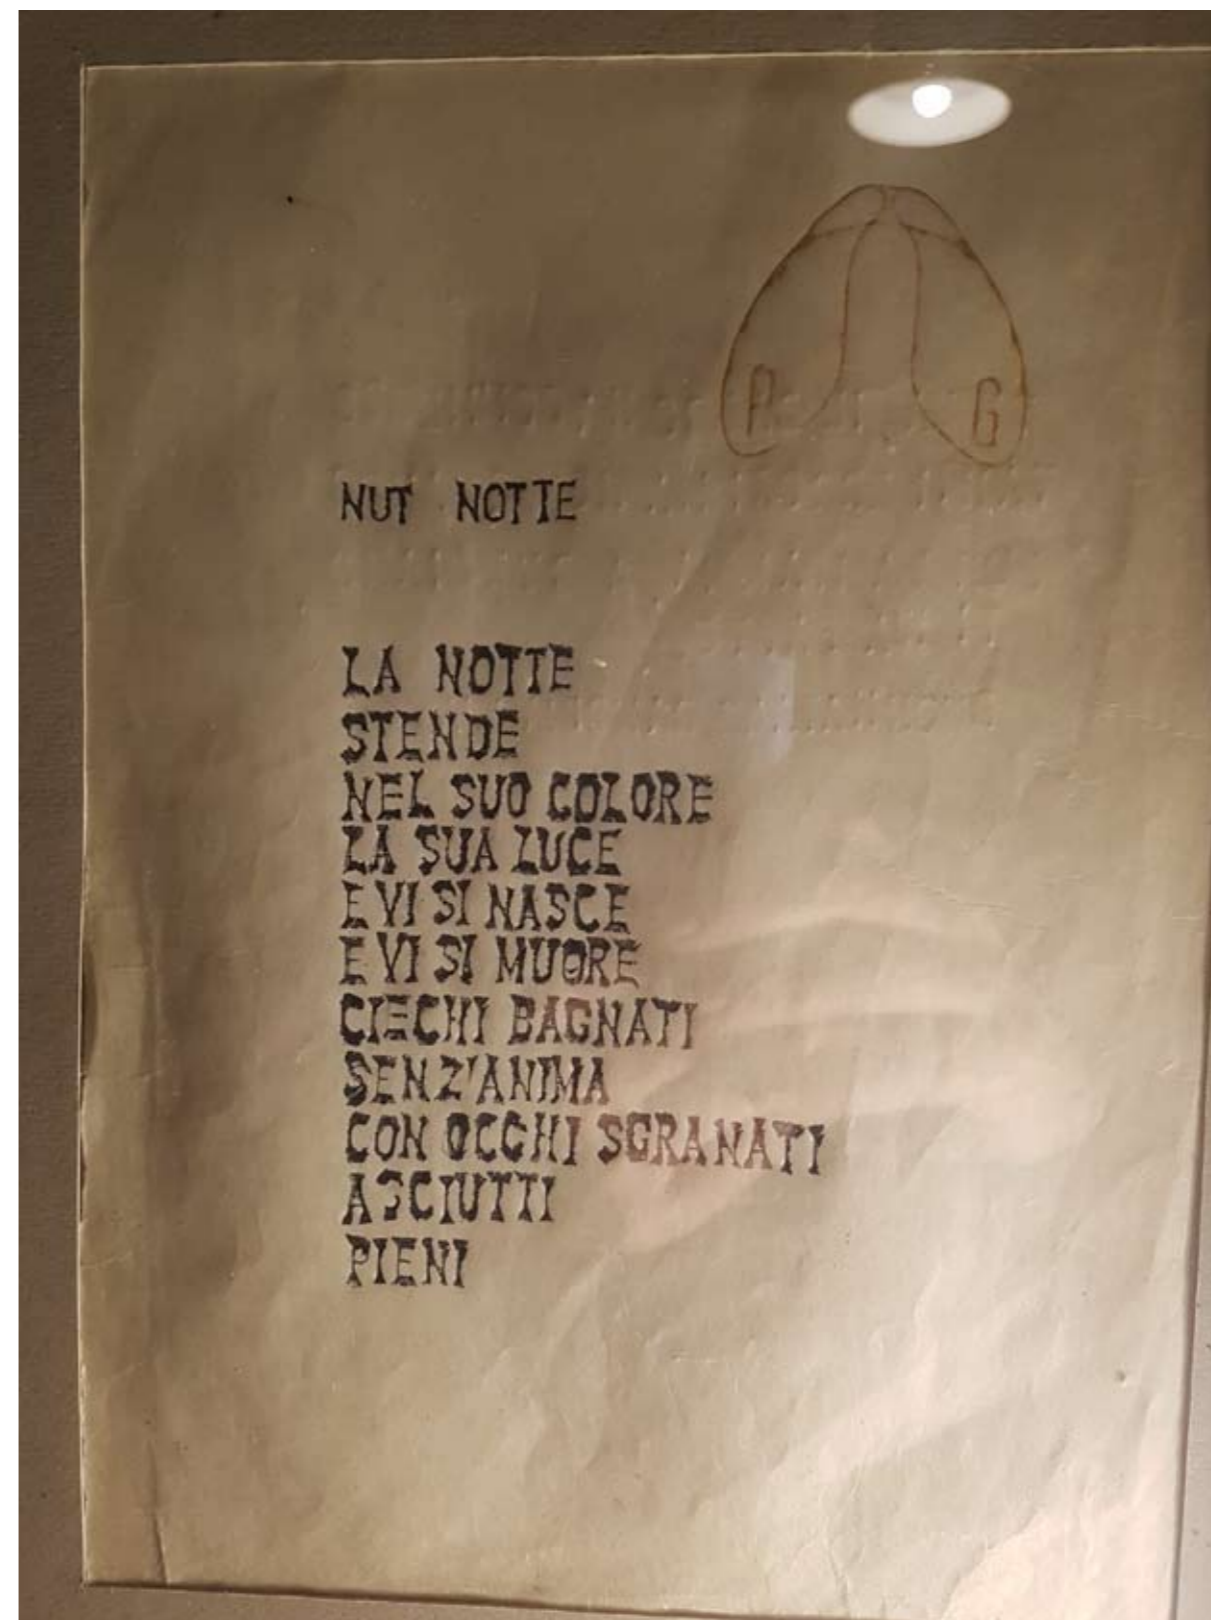 A G
NUT NOTTE
LA NOTTE
STENDE
NEL SUO COLORE
LA SUA LUCE
E VI SI NASCE
E VI SI MUORE
CIECHI BAGNATI
SENZ'ANIMA
CON OCCHI SGRANATI
ASCIUTTI
PIENI